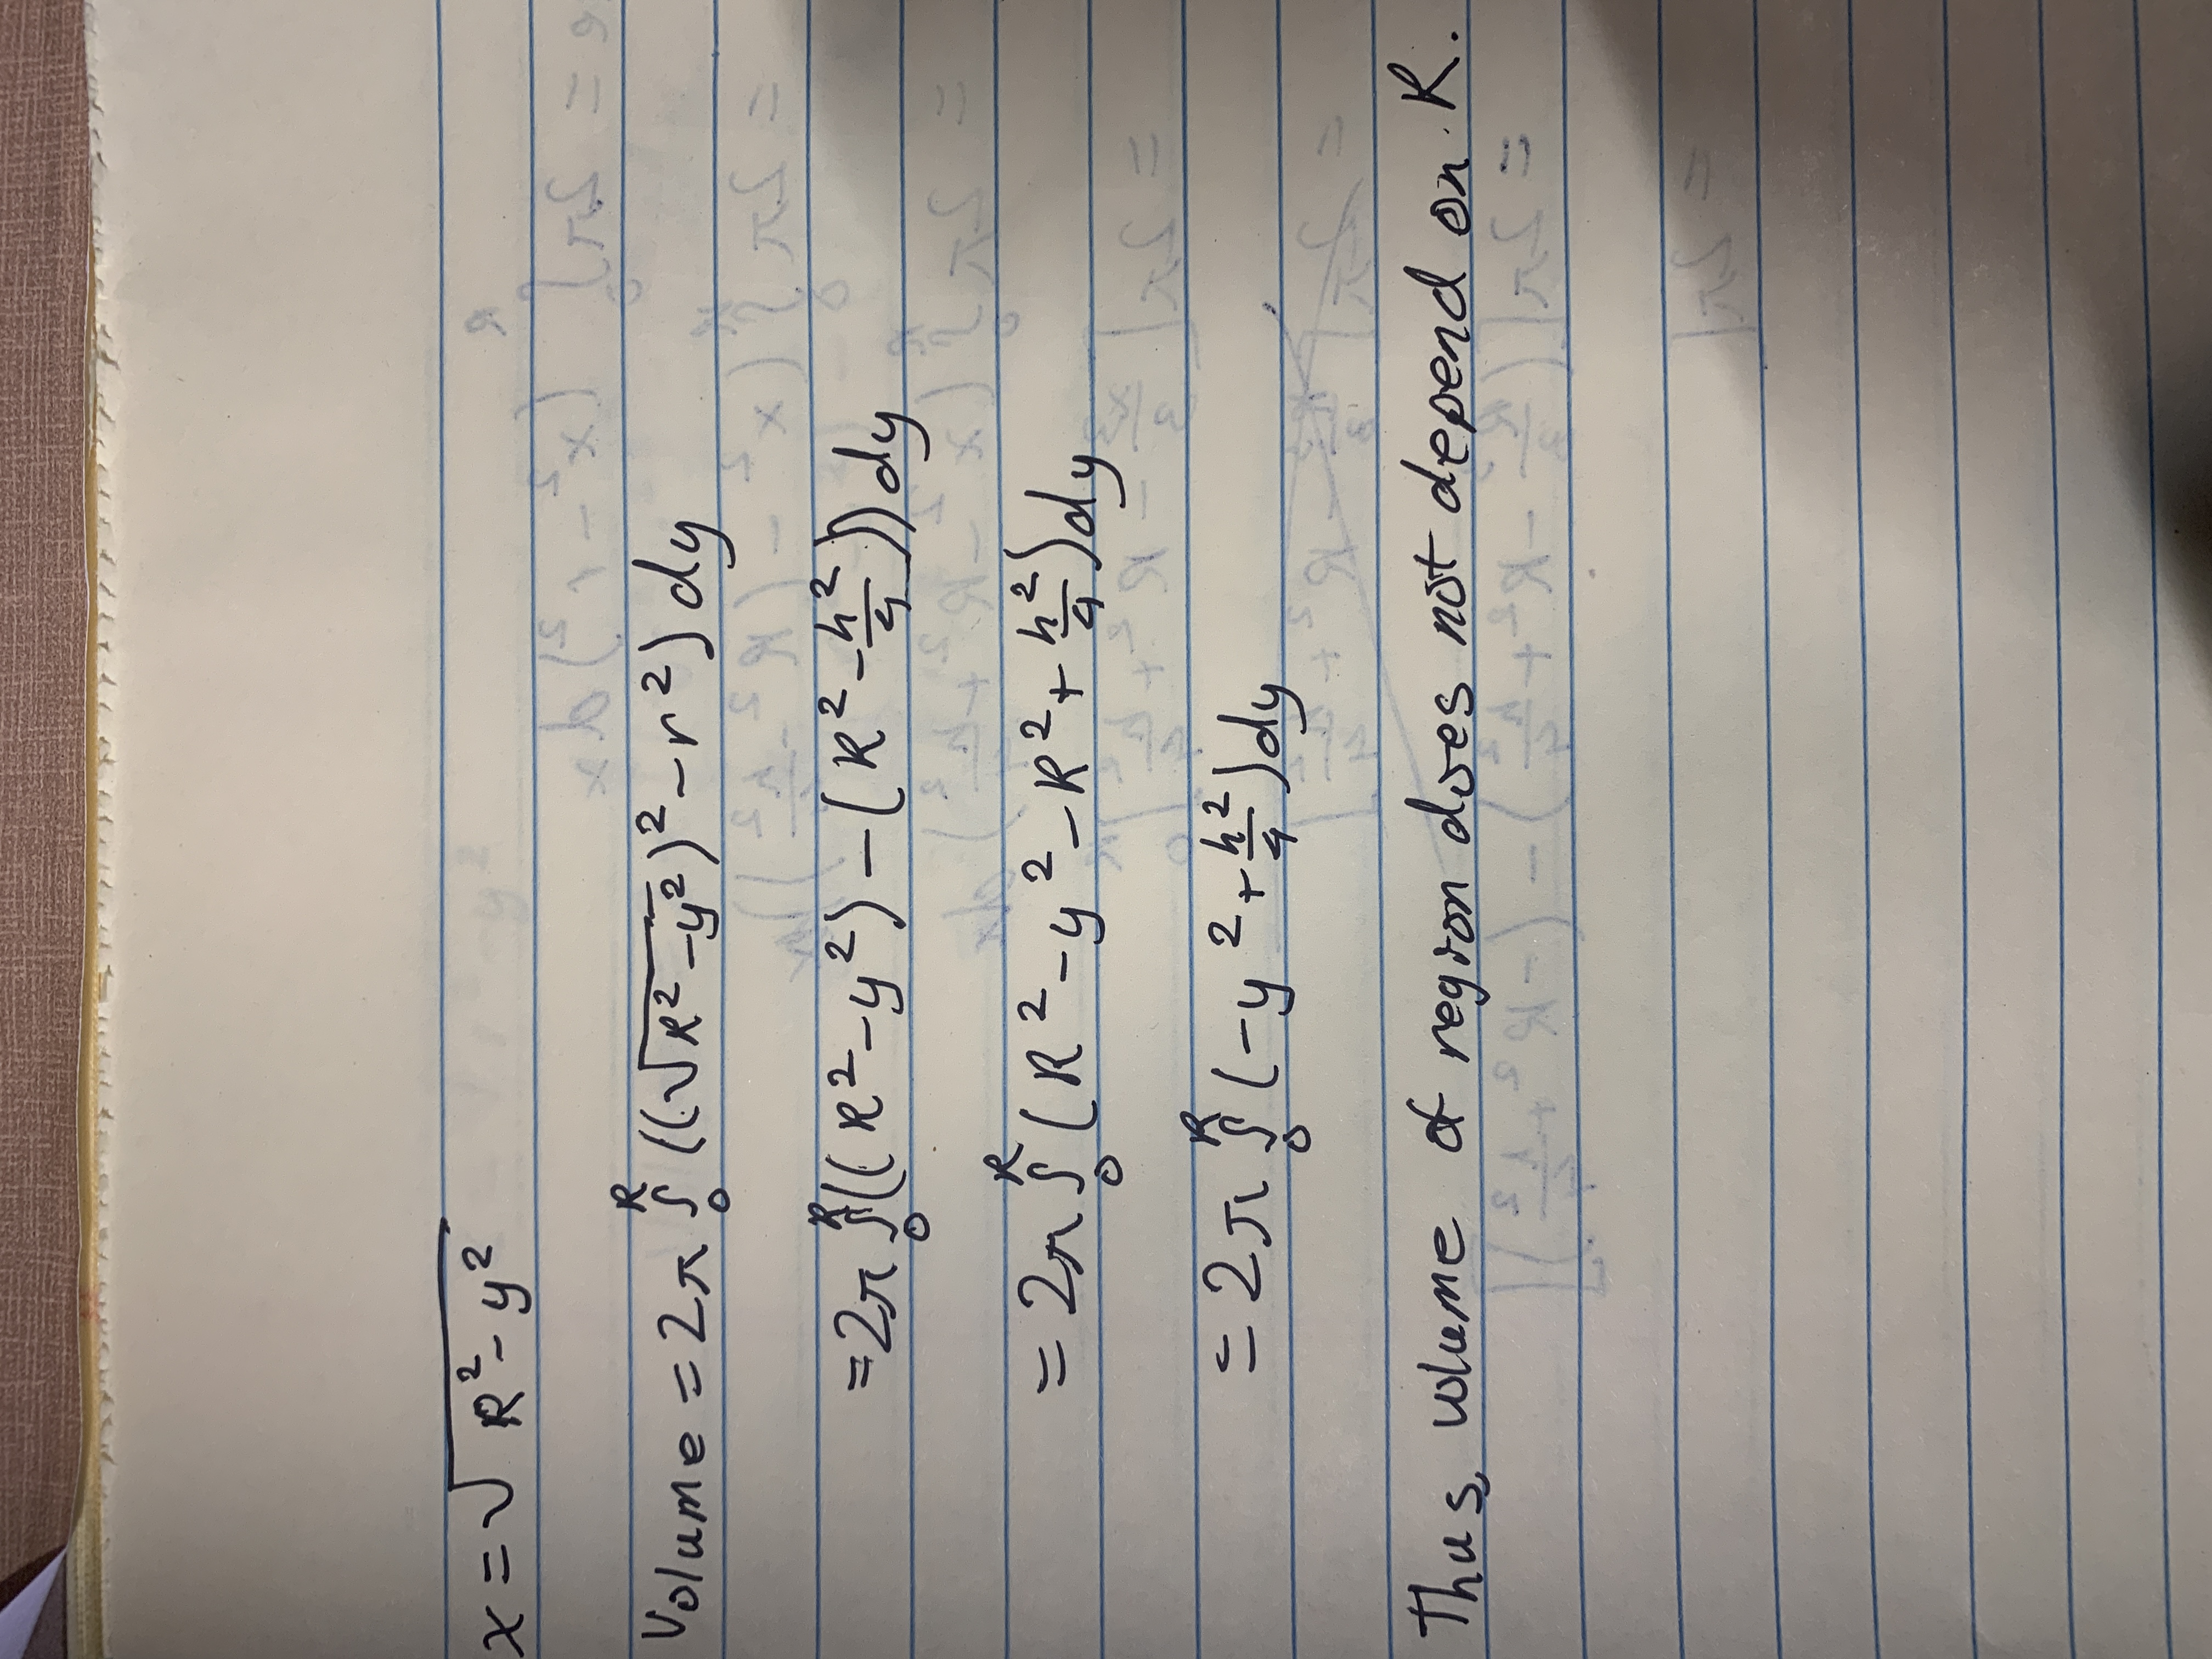 x = √(R² - y²)
Volume = 2π ∫₀ᴿ ((√(R² - y²))² - r²) dy
= 2π ∫₀ᴿ ((R² - y²) - (R² - h²/4)) dy
= 2π ∫₀ᴿ (R² - y² - R² + h²/4) dy
= 2π ∫₀ᴿ (-y² + h²/4) dy
Thus, volume of region does not depend on R.